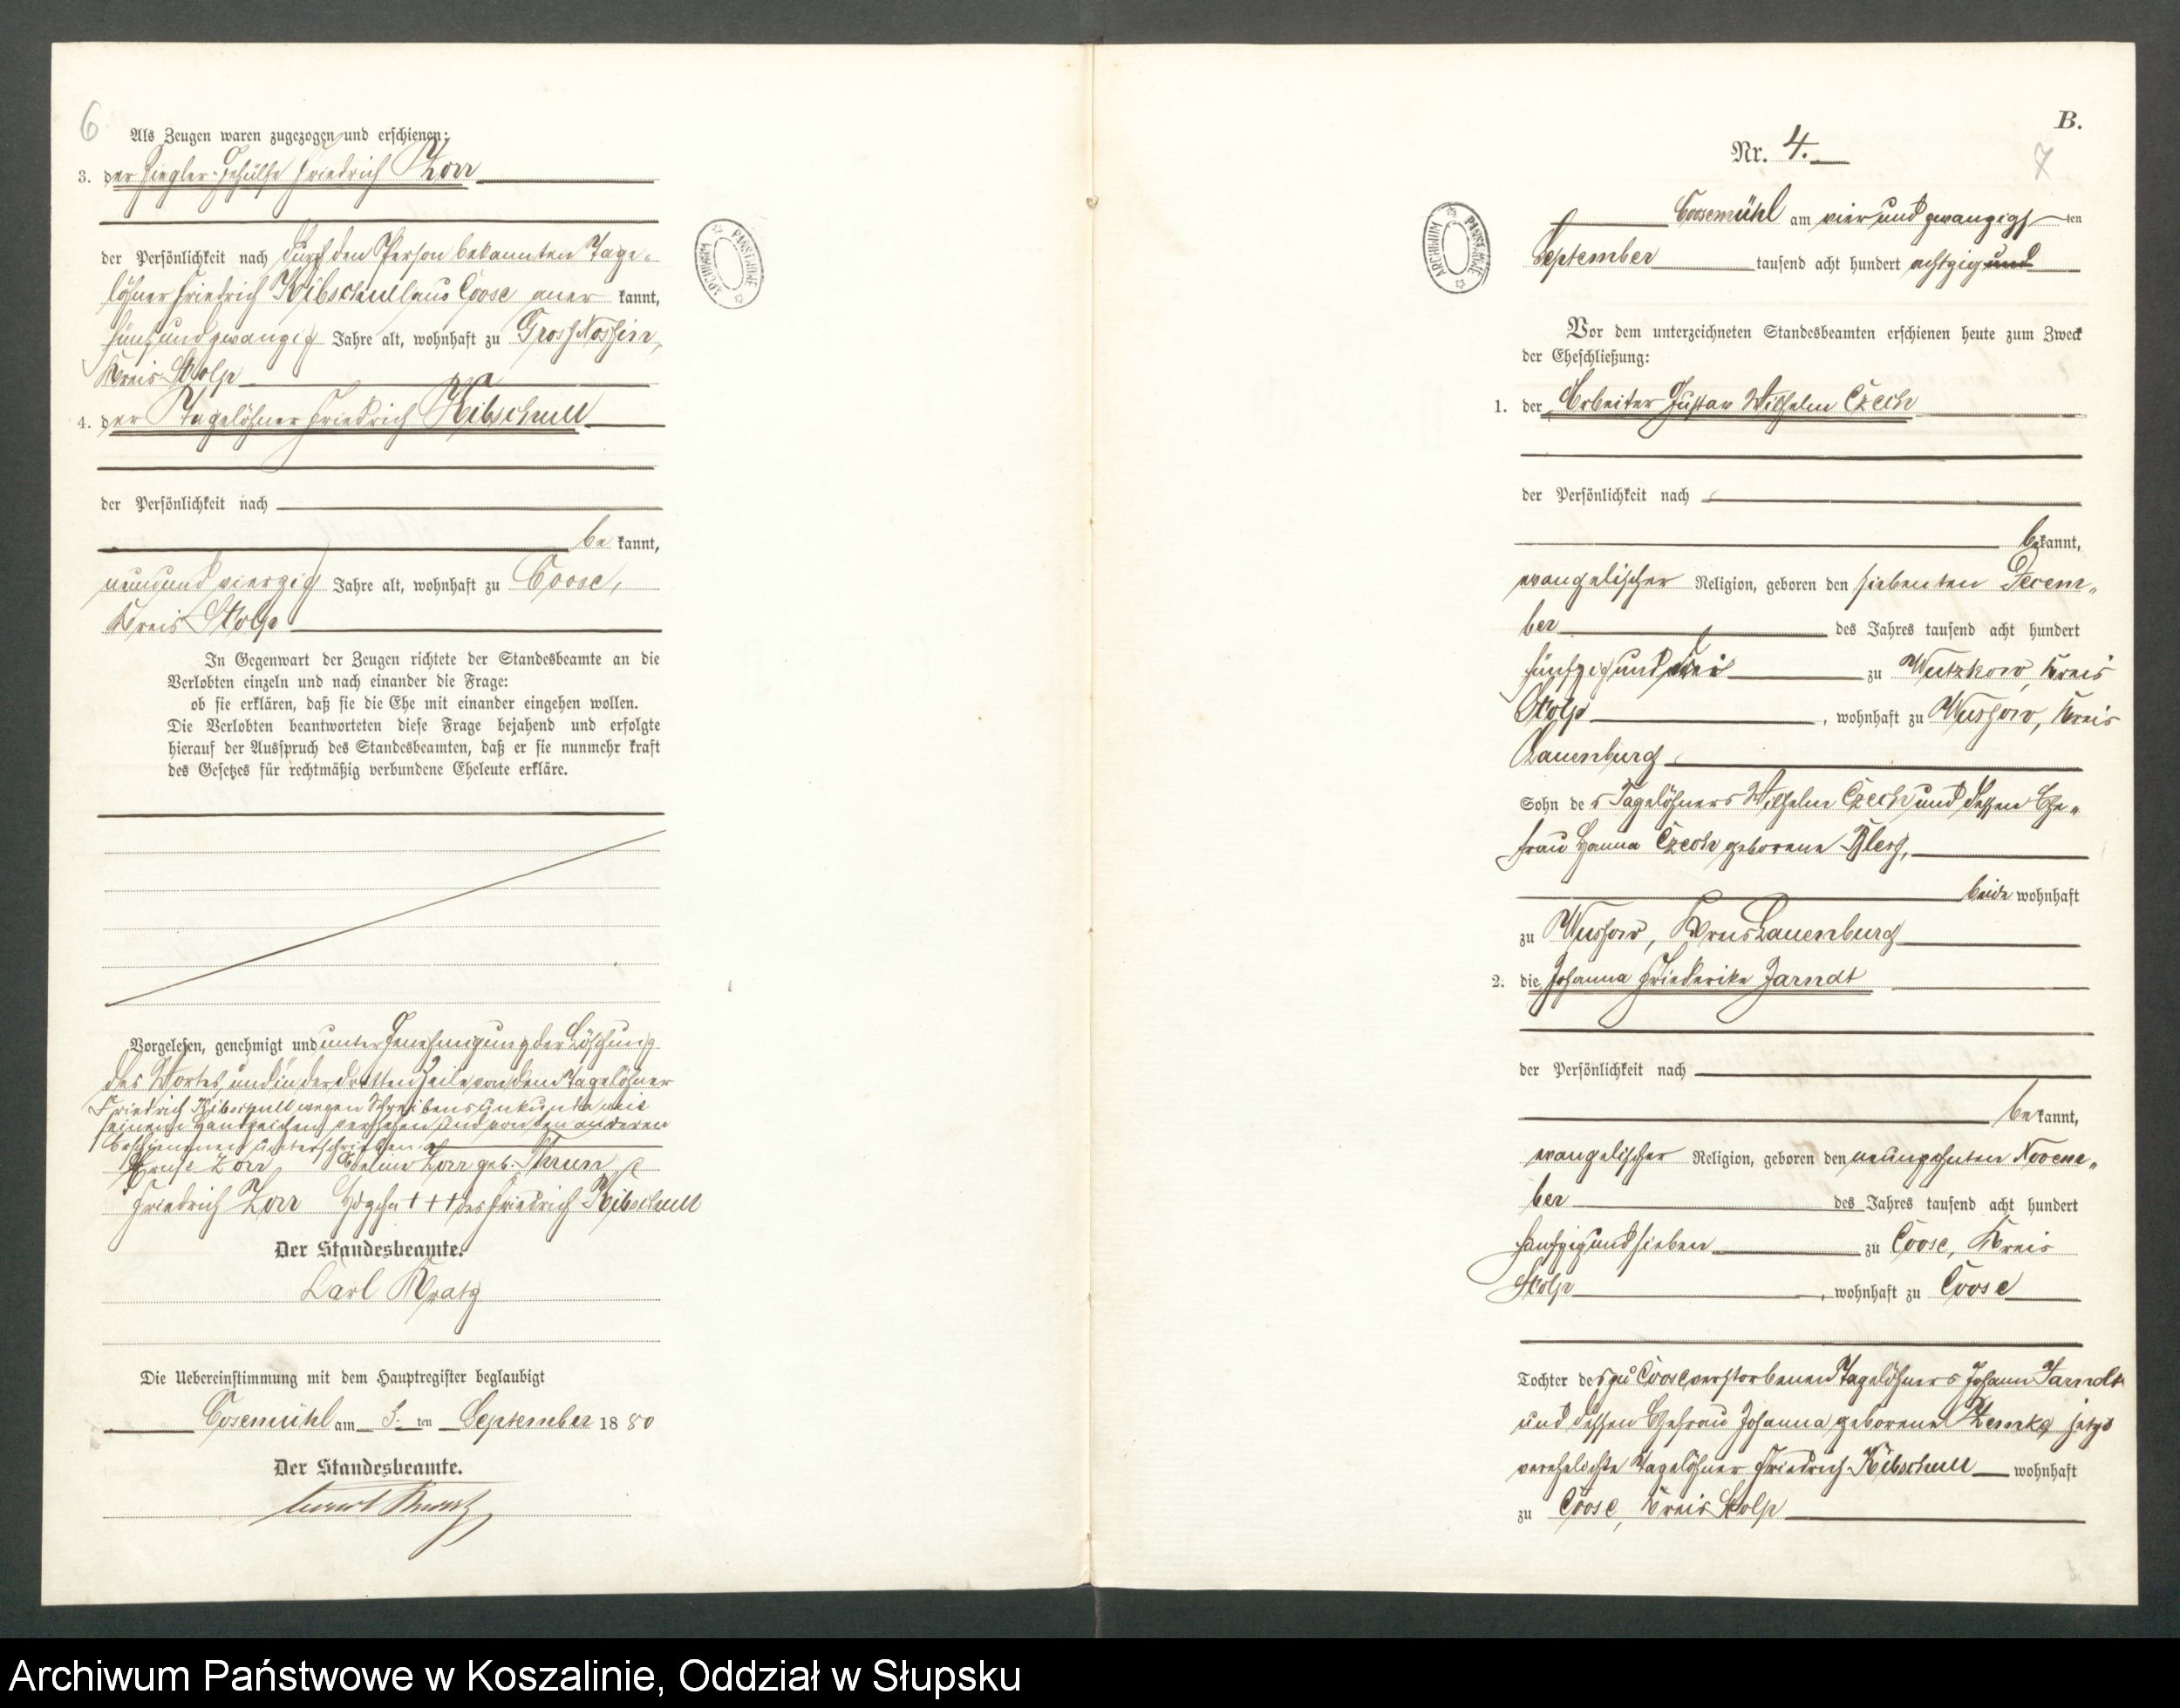 6
Als Zeugen waren zugezogen und erschienen:
3. der Ziegler-Gehülfe Friedrich Zorr
der Persönlichkeit nach durch den Person bekannten Tage-
löhner Friedrich Kibschull aus Coose aner kannt,
fünf und zwanzig Jahre alt, wohnhaft zu Gross Nossin,
Kreis Stolp
4. der Tagelöhner Friedrich Kibschull
der Persönlichkeit nach
be kannt,
neun und vierzig Jahre alt, wohnhaft zu Coose,
Kreis Stolp
In Gegenwart der Zeugen richtete der Standesbeamte an die
Verlobten einzeln und nach einander die Frage:
ob sie erklären, daß sie die Ehe mit einander eingehen wollen.
Die Verlobten beantworteten diese Frage bejahend und erfolgte
hierauf der Ausspruch des Standesbeamten, daß er sie nunmehr kraft
des Gesetzes für rechtmäßig verbundene Eheleute erkläre.
Vorgelesen, genehmigt und unter Genehmigung der Löschung
des Wortes „und“ in der dritten Zeile von dem Tagelöhner
Friedrich Kibschull wegen Schreibensunkunde mit
seinem Handzeichen versehen und von den anderen
Erschienenen unterschrieben.
Ernst Zorr Zorr geb.
Friedrich Zorr Hdzchn +++ des Friedrich Kibschull
Der Standesbeamte.
Carl Kratz
Die Uebereinstimmung mit dem Hauptregister beglaubigt
Cosemühl am 3. ten September 1880
Der Standesbeamte.
ARCHIWUM PAŃSTWOWE
B.
Nr. 4.
7
ARCHIWUM PAŃSTWOWE
Coosemühl am vier und zwanzigs ten
September tausend acht hundert achtzig und
Vor dem unterzeichneten Standesbeamten erschienen heute zum Zweck
der Eheschließung:
1. der Arbeiter Gustav Wilhelm Czech
der Persönlichkeit nach
be kannt,
evangelischer Religion, geboren den siebenten Decem-
ber des Jahres tausend acht hundert
fünfzig und drei zu Wutzkow, Kreis
Stolp, wohnhaft zu Wussow, Kreis
Lauenburg
Sohn des Tagelöhners Wilhelm Czech und dessen Ehe-
frau Hanna Czech geborene
beide wohnhaft
zu Wussow, Kreis Lauenburg
2. die Johanna Friederike Jarndt
der Persönlichkeit nach
be kannt,
evangelischer Religion, geboren den neunzehnten Novem-
ber des Jahres tausend acht hundert
fünfzig und sieben zu Coose, Kreis
Stolp, wohnhaft zu Coose
Tochter des zu Coose verstorbenen Tagelöhners Johann Jarndt
und dessen Ehefrau Johanna geborene Zemke, jetzt
verehelichte Tagelöhner Friedrich Kibschull wohnhaft
zu Coose, Kreis Stolp
Archiwum Państwowe w Koszalinie, Oddział w Słupsku